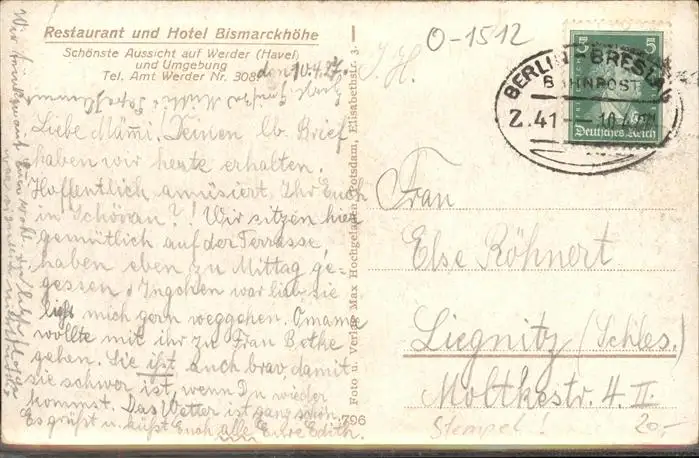 Restaurant und Hotel Bismarckhöhe
Schönste Aussicht auf Werder (Havel)
und Umgebung
Tel. Amt Werder Nr. 308
den 10.4.27.
Liebe Mämmi! Deinen lb. Brief
haben wir heute erhalten.
Hoffentlich amüsiert Ihr Euch
in Schövan?! Wir sitzen hier
gemütlich auf der Terrasse,
haben eben zu Mittag ge-
gessen. Ingchen war lieb, sie
ließ mich gern weggehen. Omama
wollte mit ihr zu Frau Bethe
gehen. Sie ißt auch brav, damit
sie schwer ist, wenn Du wieder
kommst. Das Wetter ist ganz schön.
Es grüßt u. küßt Euch alle Eure Edith.
Foto u. Verlag Max Hochgeladen, Potsdam, Elisabethstr. 3.
796
J. H.
O-1512
BERLIN BRESLAU
BAHNPOST
Z. 41
10.4.27
5 5
Deutsches Reich
Frau
Else Röhnert
Liegnitz (Schles.)
Moltkestr. 4. II.
Stempel!
20,-